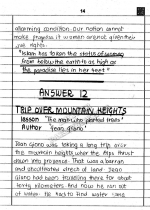 14
alarming condition. Our nation cannot
make progress if women are not given their
due rights.
"Islam has taken the status of woman
from below the earth to as high as
the paradise lies in her feet"
ANSWER 12
TRIP OVER MOUNTAIN HEIGHTS
lesson "The man who planted trees"
Author Jean Giono
Jean Giono was taking a long trip over
the mountain heights where the Alps thrust
down into provence. That was a barren
and uncultivated stretch of land. Jean
Giono had been travelling there for about
twenty kilometers and now he ran out
of water. He had to find water